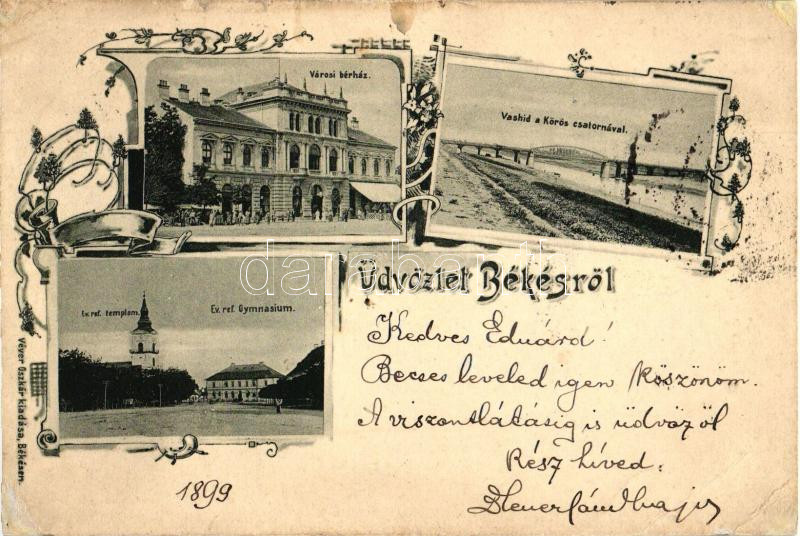 Városi bérház.
Vashid a Körös csatornával.
Ev. ref. templom.
Ev. ref. Gymnasium.
Üdvözlet Békésről
Kedves Eduárd!
Becses leveled igen köszönöm.
A viszontlátásig is üdvözöl
Rész híved:
1899
Véver Oszkár kiadása, Békésen.